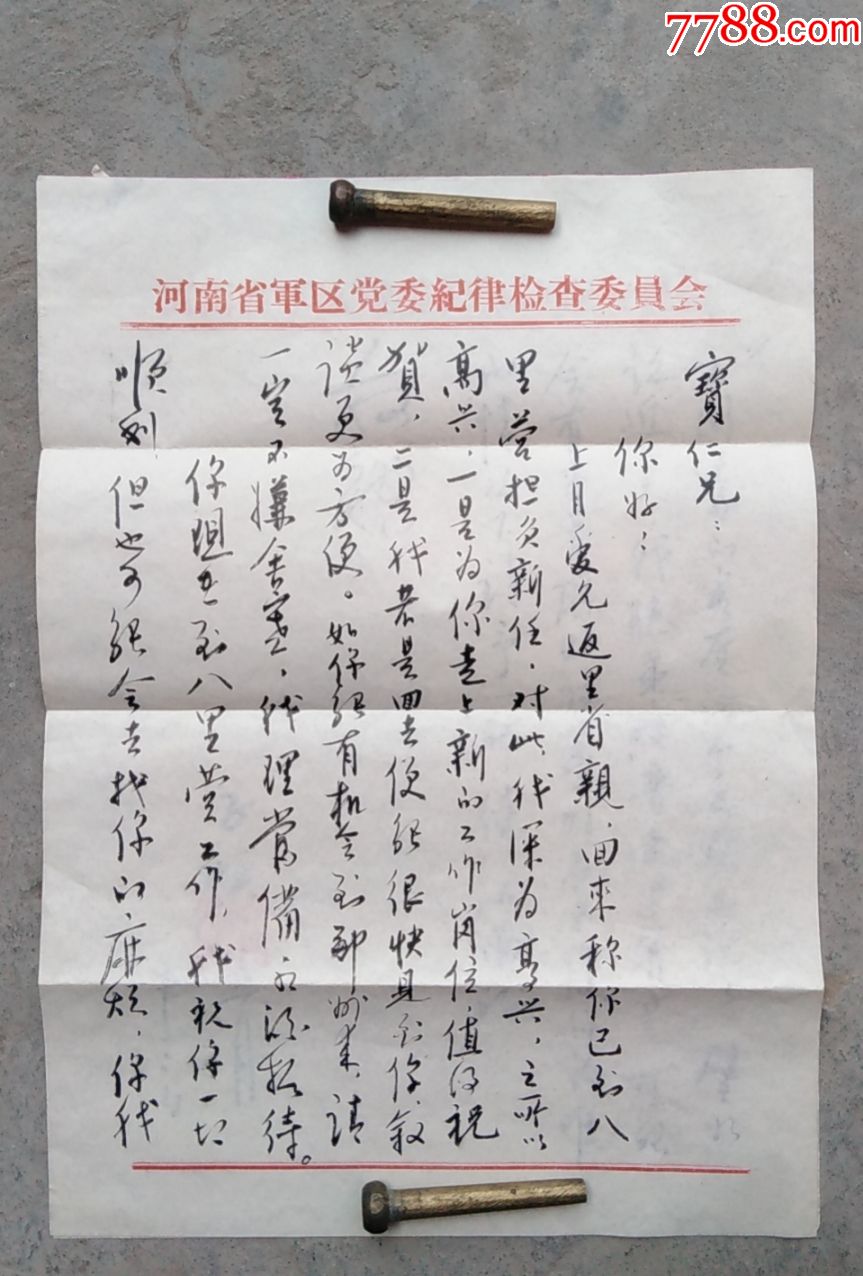 7788.com
河南省軍区党委紀律检查委員会
寶仁兄：
你好：
上月爱兄返里省親，回来称你已到八
里营担负新任，对此，我深为高兴，之所以
高兴，一是为你走上新的工作岗位，值得祝
賀，二是我若是回去便能很快見到你，叙
谈更为方便。如你能有机会到郑州来，请
一定不嫌舍寒，我理當備酒招待。
你现在到八里营工作，我祝你一切
順利，但也可能会去找你的麻烦，你我